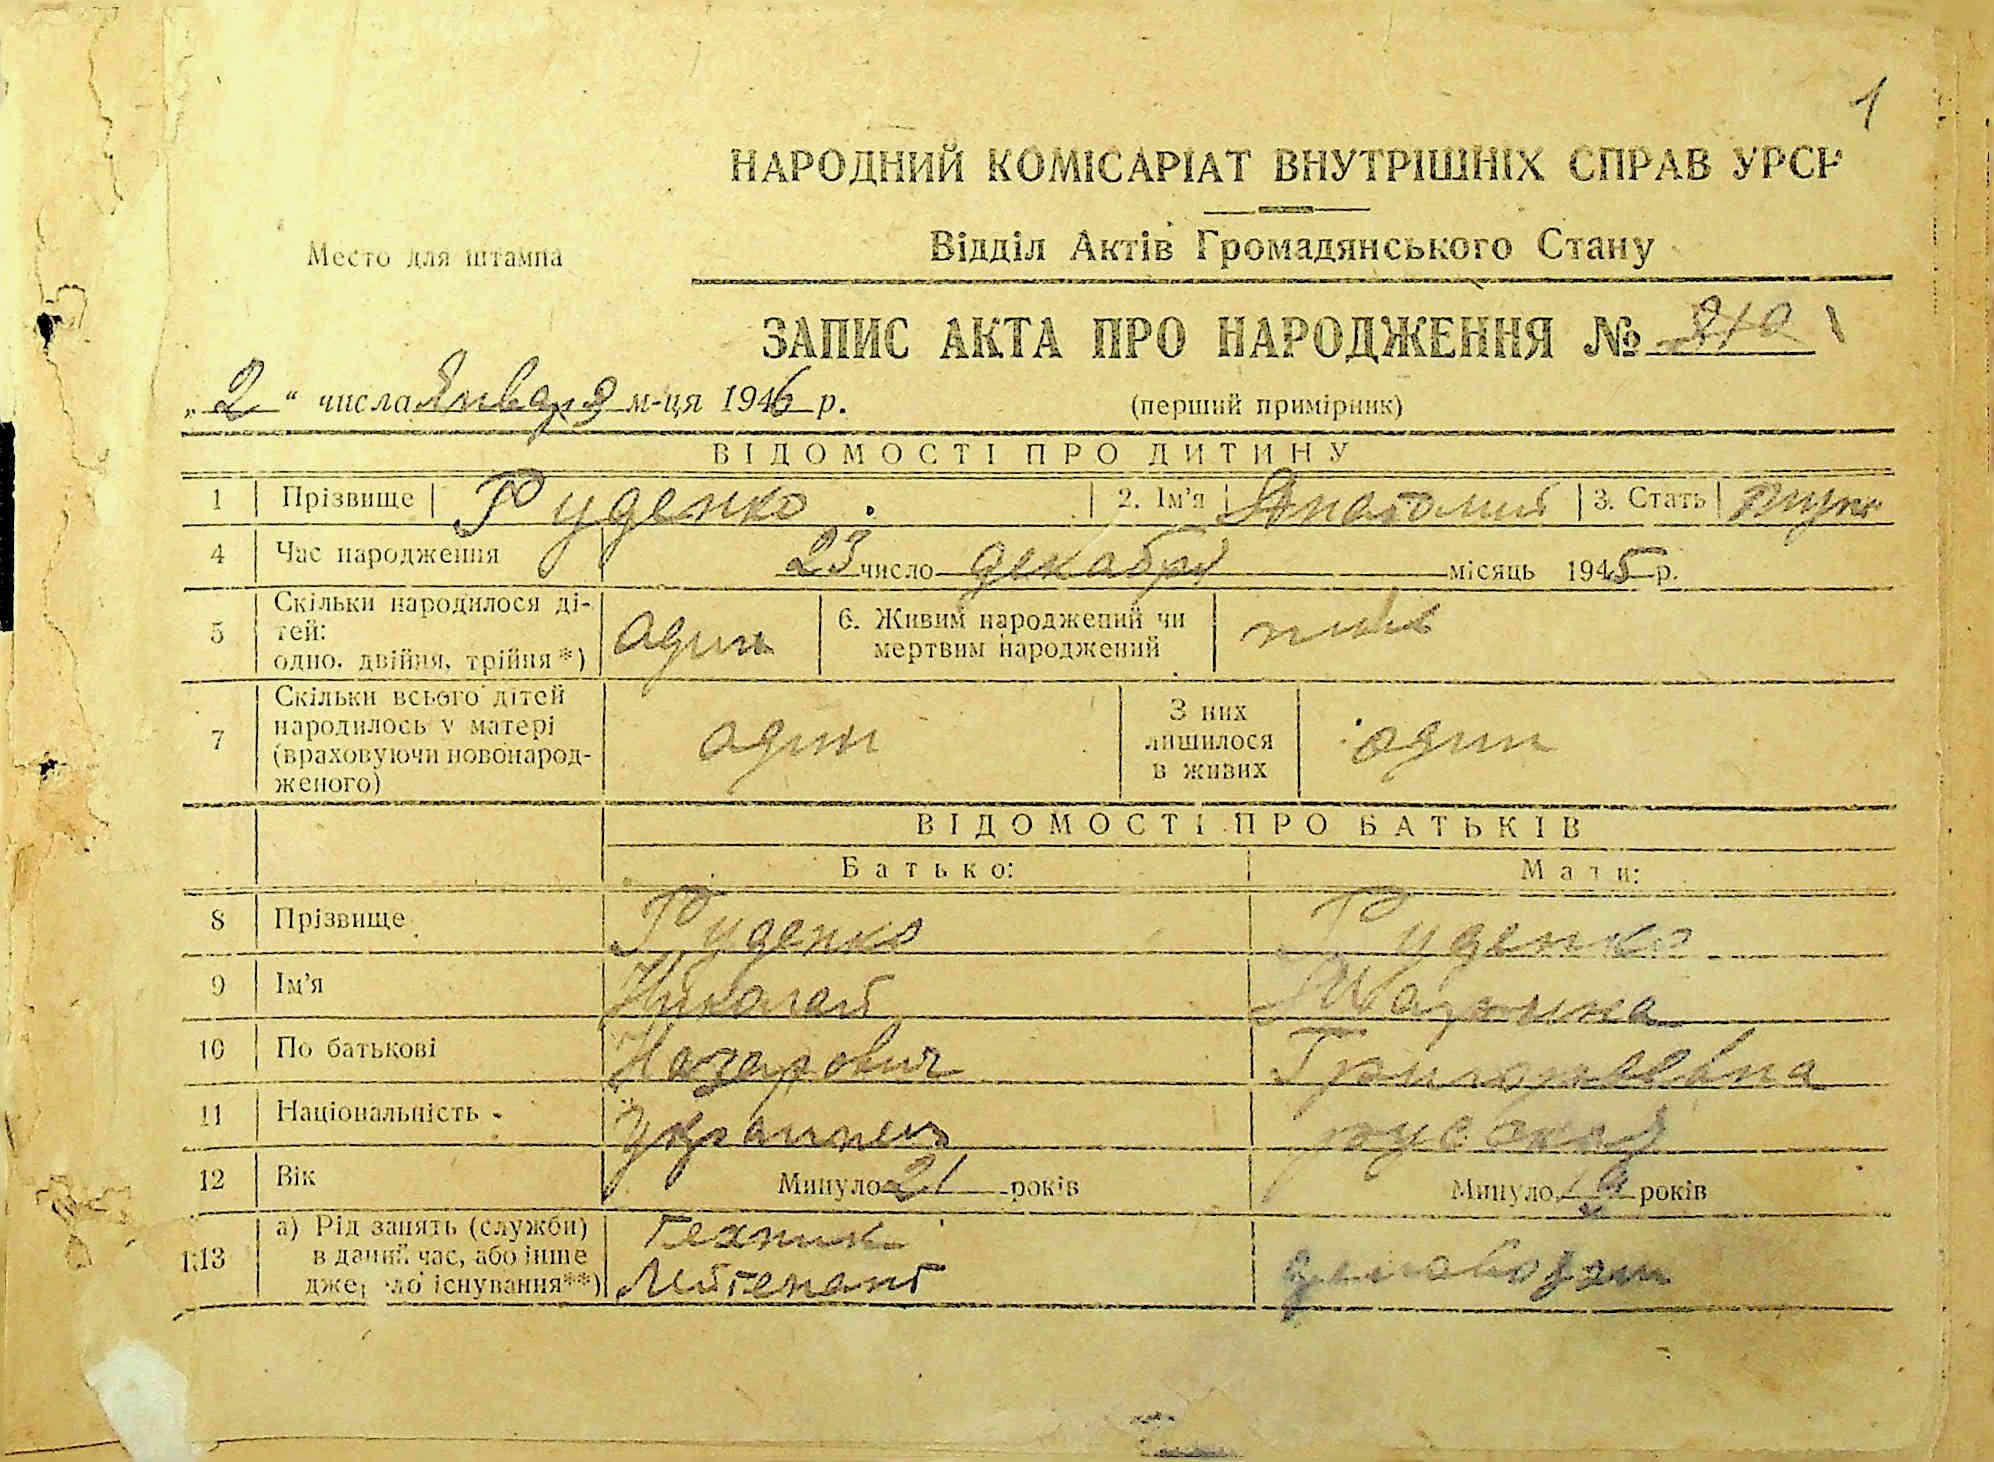 1
НАРОДНИЙ КОМІСАРІАТ ВНУТРІШНІХ СПРАВ УРСР
Відділ Актів Громадянського Стану
Место для штампа
ЗАПИС АКТА ПРО НАРОДЖЕННЯ №
„2“ числа Января м-ця 1946 р.
(перший примірник)
ВІДОМОСТІ ПРО ДИТИНУ
1 Прізвище Руденко 2. Ім’я Анатолий 3. Стать муж
4 Час народження 23 число декабря місяць 1945 р.
5 Скільки народилося ді-
тей:
одно, двійня, трійня*) один
6. Живим народжений чи
мертвим народжений
7 Скільки всього дітей
народилось у матері
(враховуючи новонарод-
женого) один
З них
лишилося
в живих один
ВІДОМОСТІ ПРО БАТЬКІВ
Батько: Мати:
8 Прізвище Руденко Руденко
9 Ім’я Николай Марина
10 По батькові Назарович Григорьевна
11 Національність Украинец русская
12 Вік Минуло 21 років Минуло 19 років
13 а) Рід занять (служби)
в даний час, або інше
джерело існування**)
Техник
Лейтенант